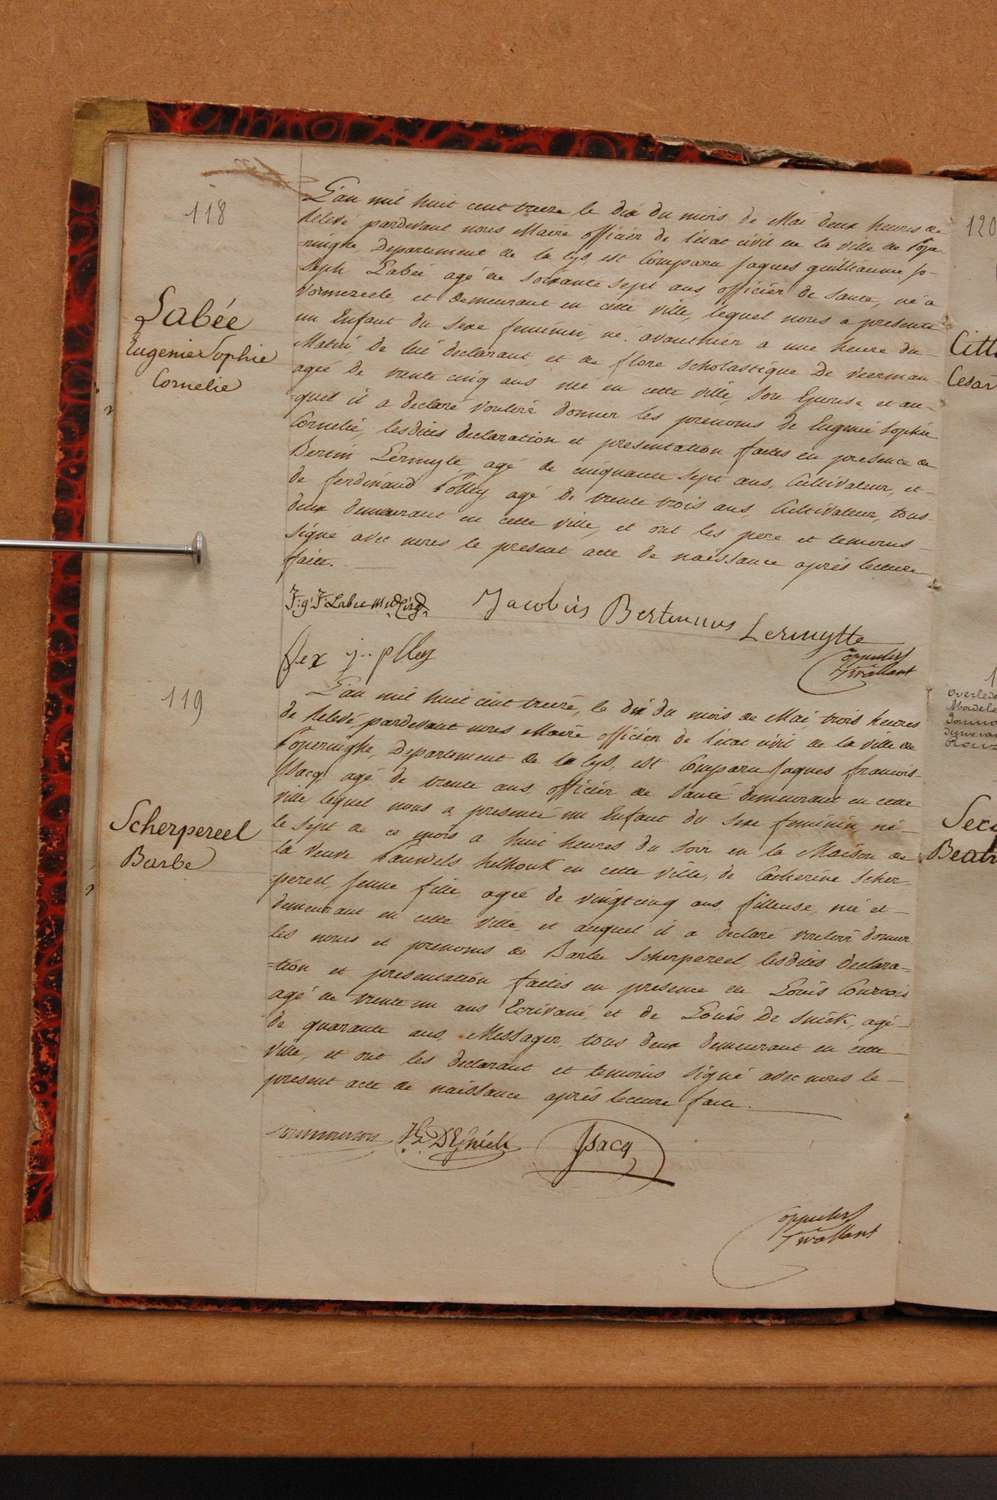 118
Labée
Eugenie Sophie
Cornelie
L'an mil huit cent treize, le dix du mois de Mai deux heures de
relevé pardevant nous Maire officier de l'état civil de la ville de Pope-
ringhe, Departement de la Lys est Comparu Jaques guilliaume Jo-
seph Labée agé de soixante sept ans, officier de santé, né a
Vormezeele, et demeurant en cette ville, lequel nous a presenté
un Enfant du sexe feminin, né avanthier a une heure du
Matin de lui declarant, et de flore scholastique de
agée de trente cinq ans née en cette ville, son Epouse et au-
quel il a declaré vouloir donner les prenoms de Eugenie Sophie
Cornelie, lesdites declaration et presentation faites en presence de
Bertin Lermyte agé de cinquante sept ans, Cultivateur, et
de ferdinand Polley agé de trente trois ans Cultivateur, tous
deux demeurant en cette ville, et ont les pere et temoins
signé avec nous le present acte de naissance après lecture
faite.
J: g: J: Labée
Jacobus Bertinnus Lermytte
119
Scherpereel
Barbe
L'an mil huit cent treize, le dix du mois de Mai, trois heures
de relevé, pardevant nous Maire officier de l'état civil de la ville de
Poperinghe, Departement de la Lys, est Comparu Jaques francois
Isacq agé de trente ans, officier de santé demeurant en cette
ville lequel nous a presenté un Enfant du sexe feminin né
le sept de ce mois a huit heures du soir en la Maison de
la Veuve Pauwels en cette ville, de Catherine Scher-
pereel, jeune fille, agée de vingtcinq ans, fileuse, née et
demeurant en cette ville et auquel il a declaré vouloir donner
les noms et prenoms de Barbe Scherpereel lesdites declara-
-tion et presentation faites en presence de Louis Courtois
agé de trente un ans Ecrivain et de Louis De Snick, agé
de quarante ans, Messager, tous deux demeurant en cette
ville, et ont les declarant et temoins signé avec nous le
present acte de naissance après lecture faite.
JIsacq
120
Cesar
Beatr